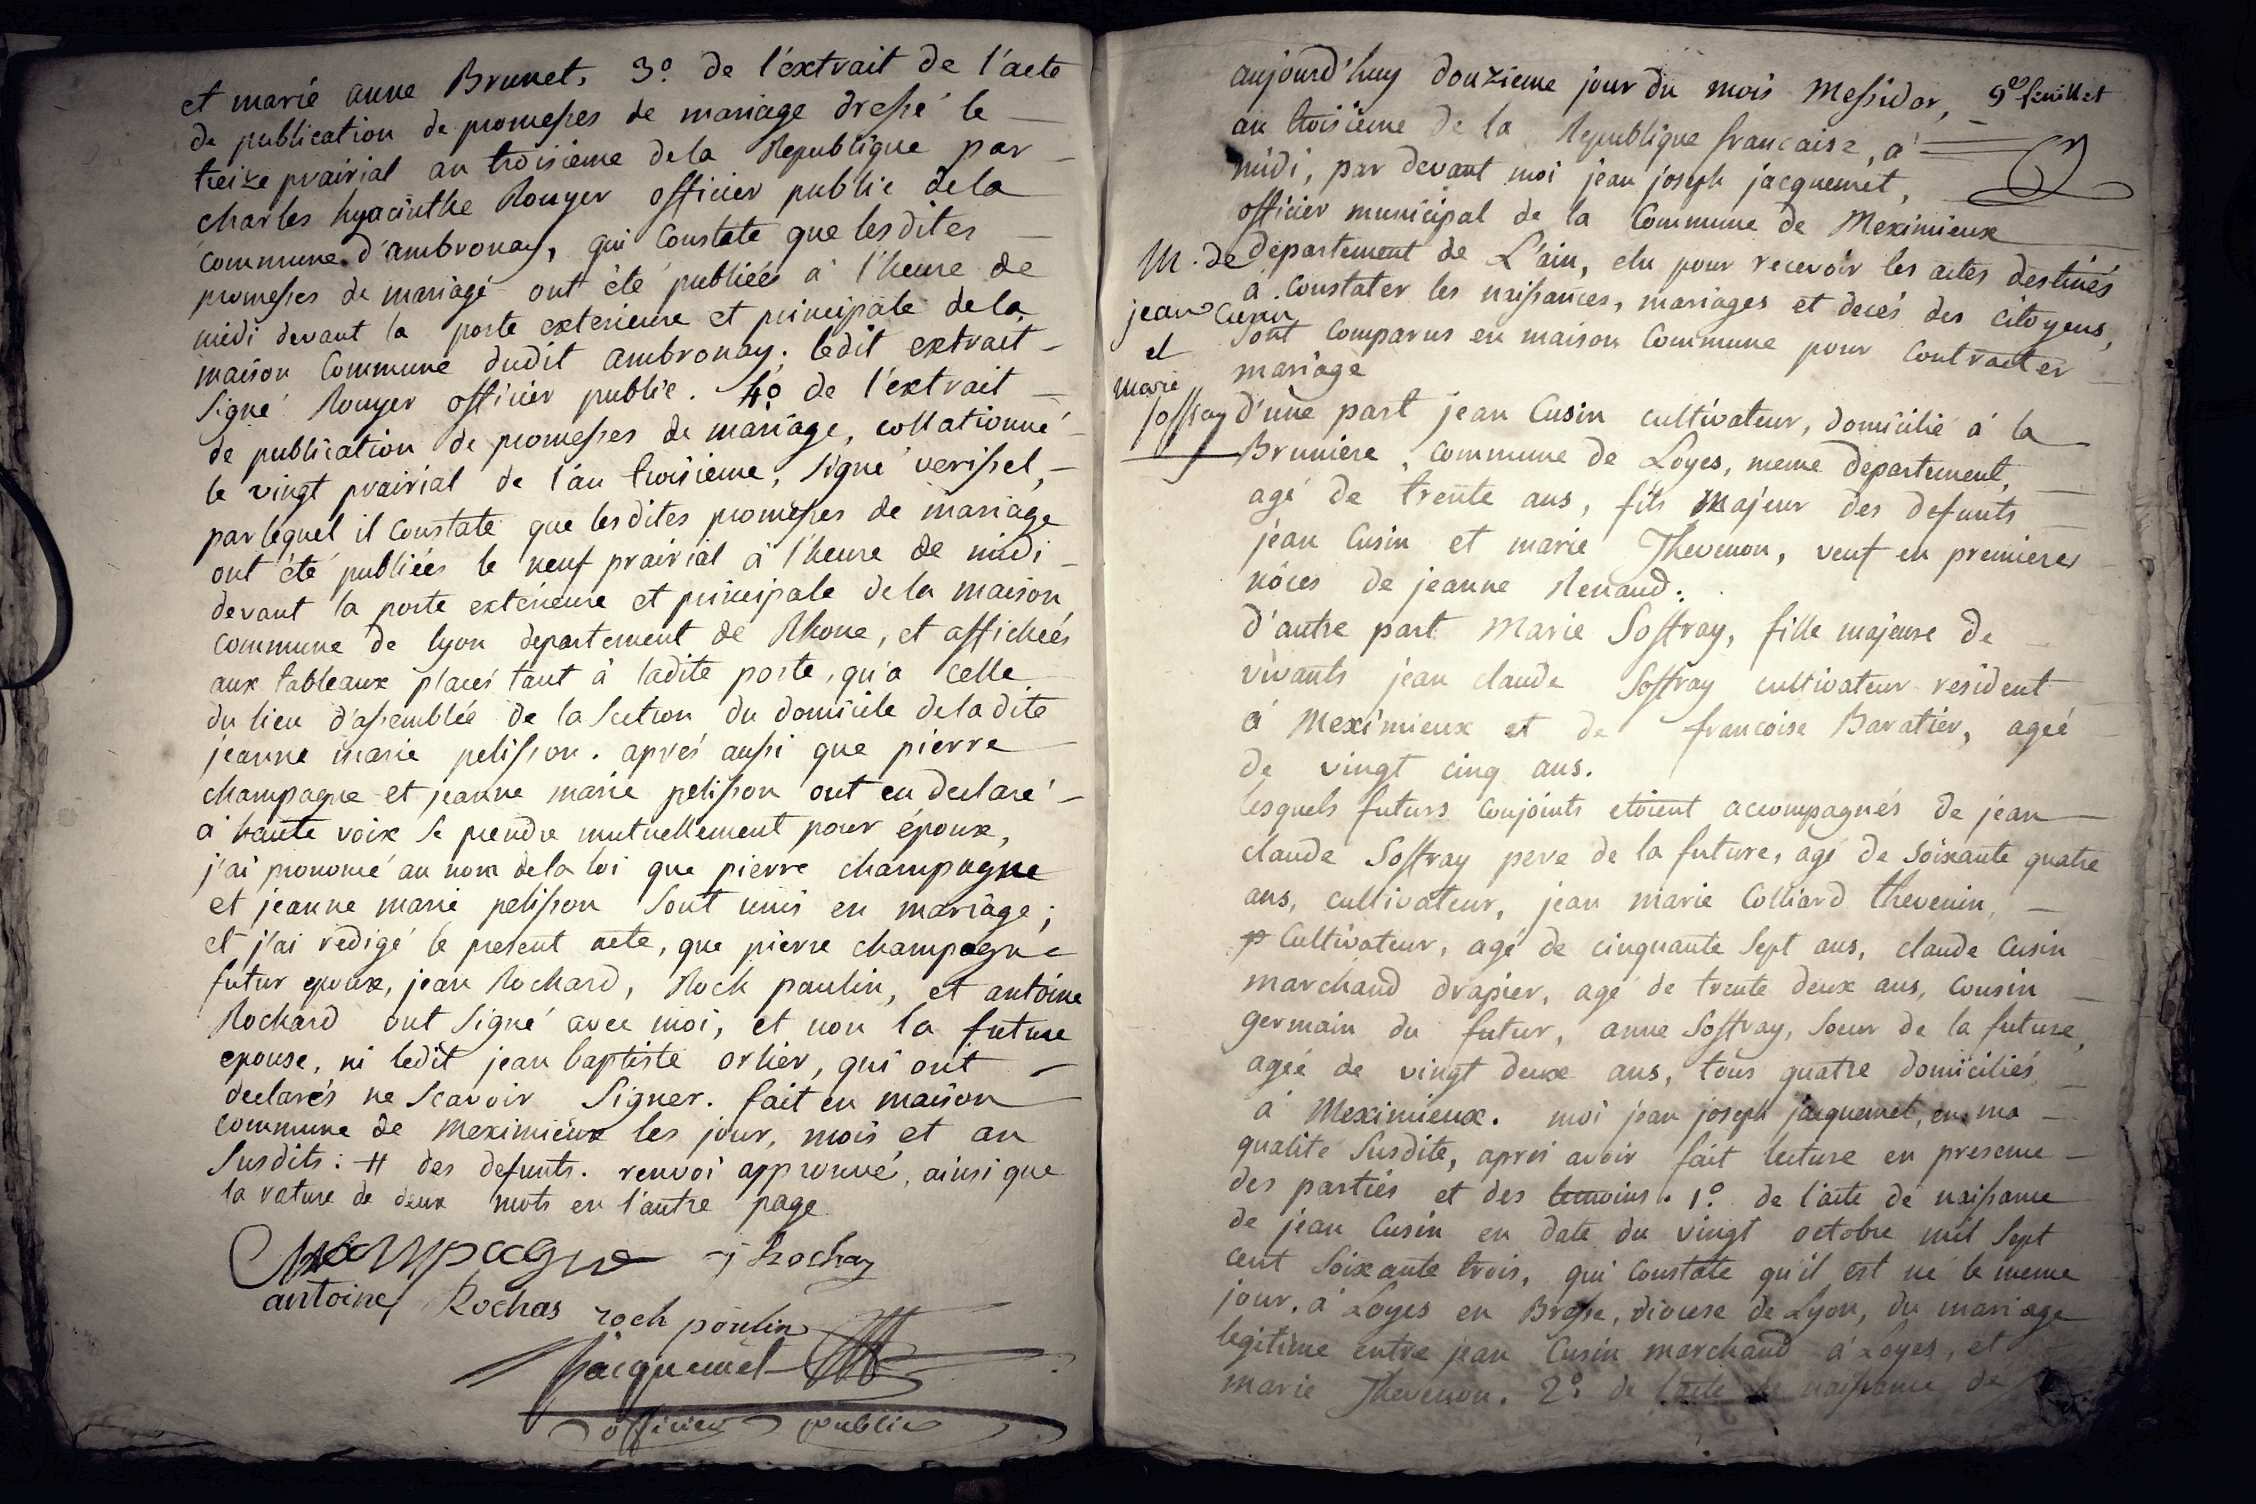 et marie anne Brunet, 3º. de l'extrait de l'acte
de publication de promesses de mariage dressé le
treize prairial an troisieme de la Republique par
charles hyacinthe Rouyer officier public de la
commune d'ambronay, qui Constate que lesdites
promesses de mariage ont été publiées à l'heure de
midi devant la porte exterieure et principale de la
maison Commune dudit ambronay; ledit extrait
signé Rouyer officier public. 4º. de l'extrait
de publication de promesses de mariage, collationné
le vingt prairial de l'an troisieme, signé verissel,
par lequel il Constate que lesdites promesses de mariage
ont été publiées le neuf prairial à l'heure de midi
devant la porte exterieure et principale de la maison
commune de lyon departement de Rhone, et affichées
aux tableaux placés tant à ladite porte, qu'a celle
du lieu d'assemblée de la Section du domicile de ladite
jeanne marie pelisson. aprés aussi que pierre
champagne et jeanne marie pelisson ont eu declaré
à haute voix se prendre mutuellement pour époux,
j'ai prononcé au nom de la loi que pierre champagne
et jeanne marie pelisson sont unis en mariage;
et j'ai redigé le present acte, que pierre champagne
futur epoux, jean Rochard, Rock paulin, et antoine
Rochard ont signé avec moi, et non la future
epouse, ni ledit jean baptiste orlier, qui ont
declarés ne scavoir signer. fait en maison
commune de Meximieux les jour, mois et an
susdits: # des defunts. renvoi approuvé, ainsi que
la rature de deux mots en l'autre page
Champagne j Rochas
antoine Rochas roch poulin
Jacquemet
officier public
9e. feuillet
aujourd'huy douzieme jour du mois Messidor,
an troisieme de la Republique francaise, à
midi, par devant moi jean joseph jacquemet,
officier municipal de la Commune de Meximieux
departement de L'ain, elu pour recevoir les actes destinés
à Constater les naissances, mariages et decés des citoyens,
sont Comparus en maison Commune pour Contracter
mariage
M. de
jean Cusin
et
marie
soffray
d'une part jean Cusin cultivateur, domicilié à la
Bruniere, Commune de Loyes, meme departement,
agé de trente ans, fils majeur des defunts
jean Cusin et marie Thevenon, veuf en premieres
nôces de jeanne Renaud.
d'autre part Marie Soffray, fille majeure de
vivants jean claude Soffray cultivateur resident
à Meximieux et de francoise Baratier, ageé
de vingt cinq ans.
lesquels futurs Conjoints etoient accompagnés de jean
claude Soffray pere de la future, agé de soixante quatre
ans, cultivateur, jean marie Colliard thevenin,
Cultivateur, agé de cinquante sept ans, claude Cusin
marchand drapier, agé de trente deux ans, Cousin
germain du futur, anne Soffray, soeur de la future,
ageé de vingt deux ans, tous quatre domiciliés
à Meximieux. moi jean joseph jacquemet, en ma
qualité susdite, aprés avoir fait lecture en presence
des parties et des temoins. 1º. de l'acte de naissance
de jean Cusin en date du vingt octobre mil sept
cent soixante trois, qui Constate qu'il est né le meme
jour, à Loyes en Bresse, diocese de Lyon, du mariage
legitime entre jean Cusin marchand à Loyes, et
marie Thevenon. 2º. de l'acte de naissance de